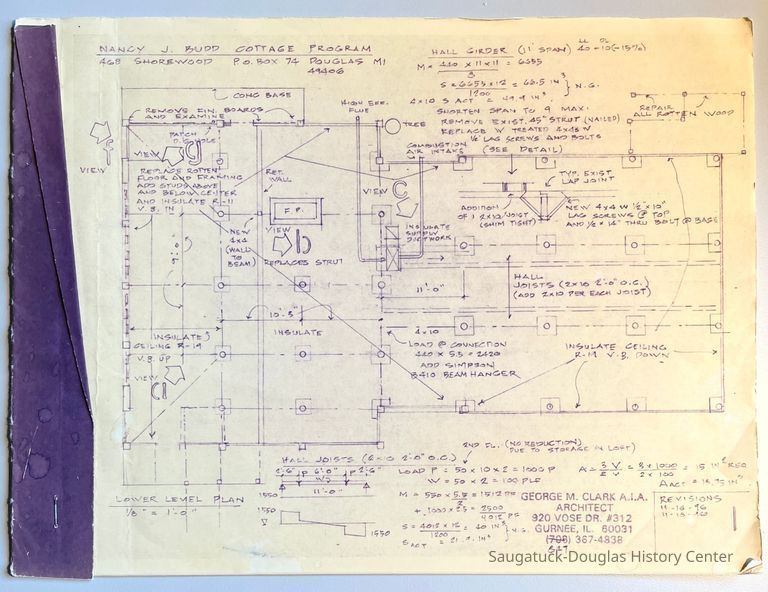 NANCY J. BUDD COTTAGE PROGRAM
468 SHOREWOOD P.O. BOX 74 DOUGLAS MI
49406
HALL GIRDER (11' SPAN)
M = 440 x 11 x 11 = 6655
8
S = 6655 x 12 = 66.5 IN³
1200
N.G.
4x10 S ACT = 49.9 IN³
SHORTEN SPAN TO 9 MAX.
REMOVE EXIST. 45° STRUT (NAILED)
REPLACE W TREATED 4x4S W
½" LAG SCREWS AND BOLTS
(SEE DETAIL)
REPAIR
ALL ROTTEN WOOD
CONC BASE
REMOVE FIN. BOARDS
AND EXAMINE
HIGH EFF.
FLUE
TREE
COMBUSTION
AIR INTAKE
PATCH
VIEW
VIEW
REPLACE ROTTEN
FLOOR AND FRAMING
ADD STUDS ABOVE
AND BELOW CENTER
AND INSULATE R-11
V.B. IN
RET.
WALL
VIEW
C
F.P.
VIEW
b
NEW
4x4
(WALL
TO
BEAM)
REPLACES STRUT
INSULATE
SUPPLY
DUCTWORK
TYP. EXIST
LAP JOINT
ADDITION
OF 1 2x12/JOIST
(SHIM TIGHT)
NEW 4x4 W ½"x10"
LAG SCREWS @ TOP
THRU BOLT @ BASE
HALL
JOISTS (2x10 2'-0" O.C.)
(ADD 2x10 PER EACH JOIST)
11'-0"
10'-5"
INSULATE
CEILING R-19
V.B. UP
INSULATE
4x10
LOAD @ CONNECTION
440 x 5.5 = 2420
ADD SIMPSON
B410 BEAM HANGER
INSULATE CEILING
V.B. DOWN
VIEW
HALL JOISTS (2x10 2'-0" O.C.)
2ND FL. (NO REDUCTION)
DUE TO STORAGE IN LOFT)
2'-6" P 6'-0" P 2'-6"
11'-0"
LOAD P = 50 x 10 x 2 = 1000 P
W = 50 x 2 = 100 PLF
A = 3 V = 3 x 1000 = 15 IN² REQ
2 2 x 100
LOWER LEVEL PLAN
⅛" = 1'-0"
1550
1550
V
M = 550 x 5.5 = 1512
2
+ 1000 x 2.5 = 2500
4012
S = 4012 x 12 = 40 IN³
1200
N.G.
GEORGE M. CLARK A.I.A.
ARCHITECT
920 VOSE DR. #312
GURNEE, IL. 60031
(708) 367-4838
847
REVISIONS
11-14-96
Saugatuck-Douglas History Center